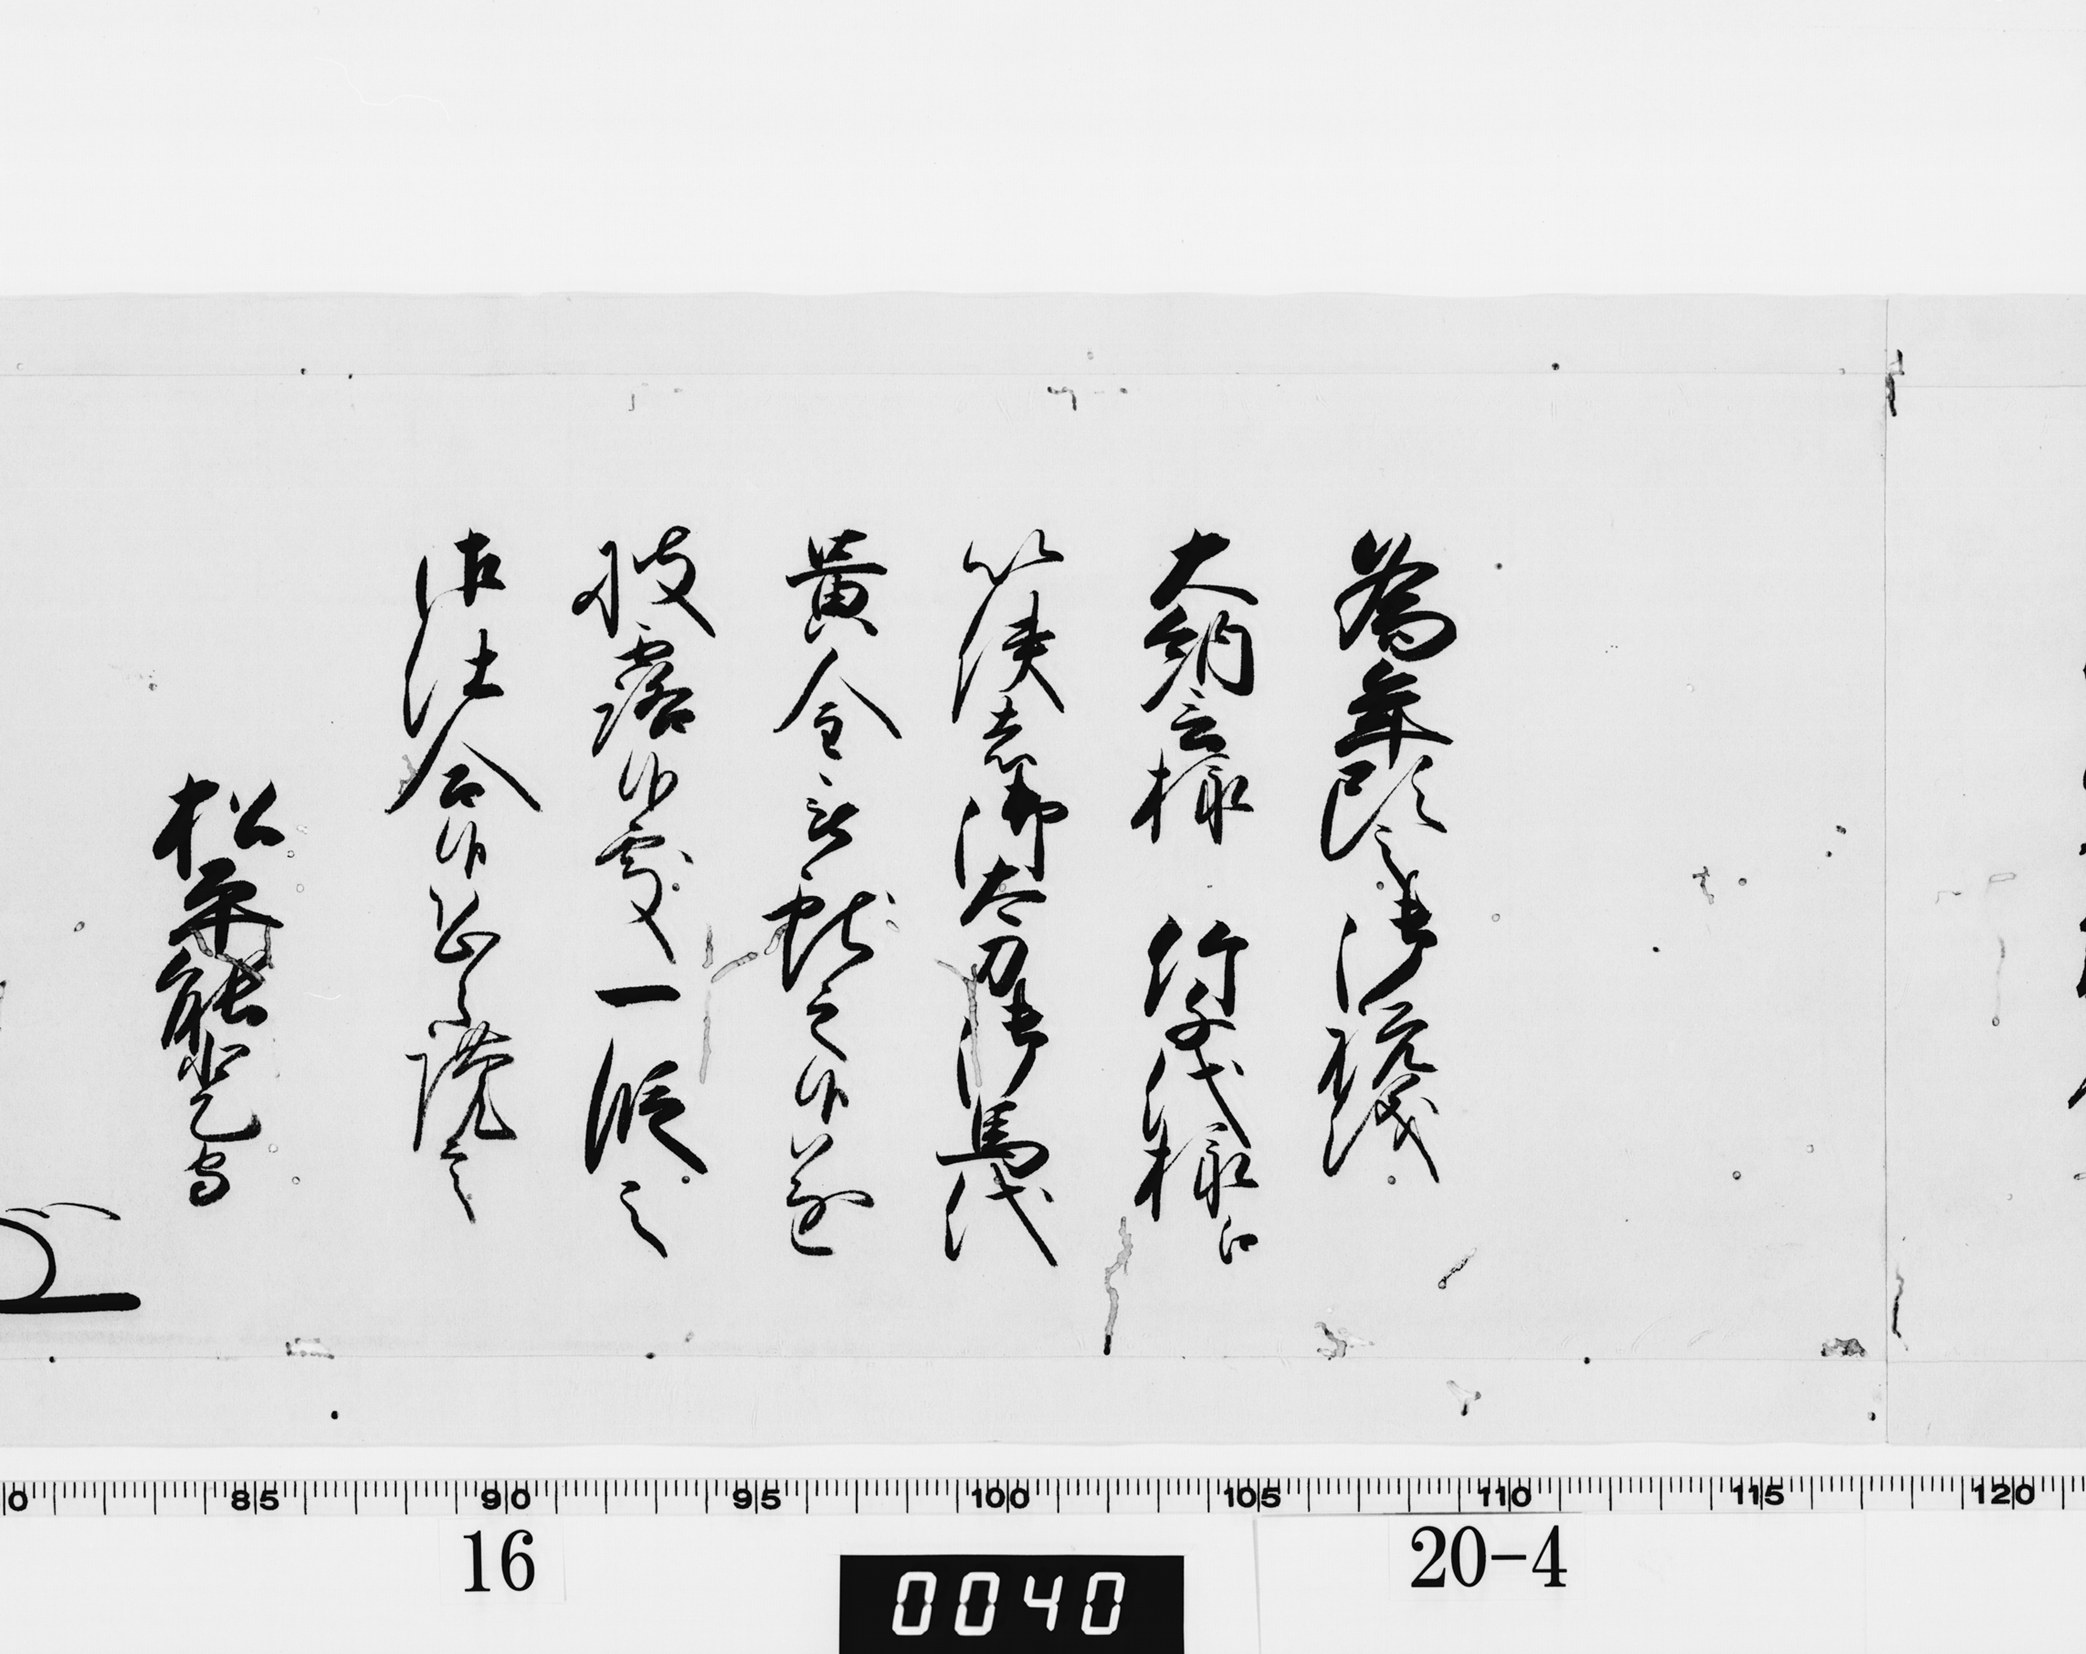 為年頭之御祝儀
大納言様 竹千代様江
以使者御太刀御馬代
黄金被献之候遂
披露候處一段之
御仕合候恐々謹言
松平能登守
85 90 95 100 105 110 115 120
16 20-4
0040